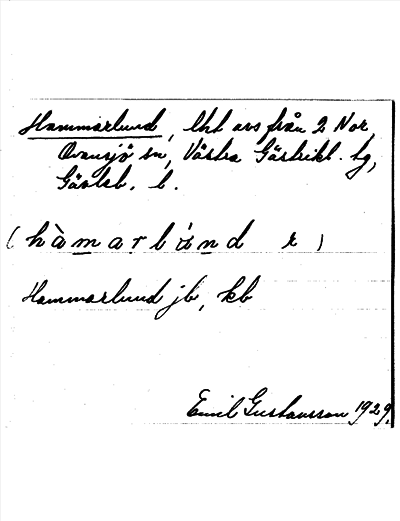 Hammarlund, lht avs från 2 Nor,
Ovansjö sn, Västra Gästrikl. tg,
Gävleb. l.
(hàmarlúnd r)
Hammarlund jb, kb
Emil Gustavsson 1929.